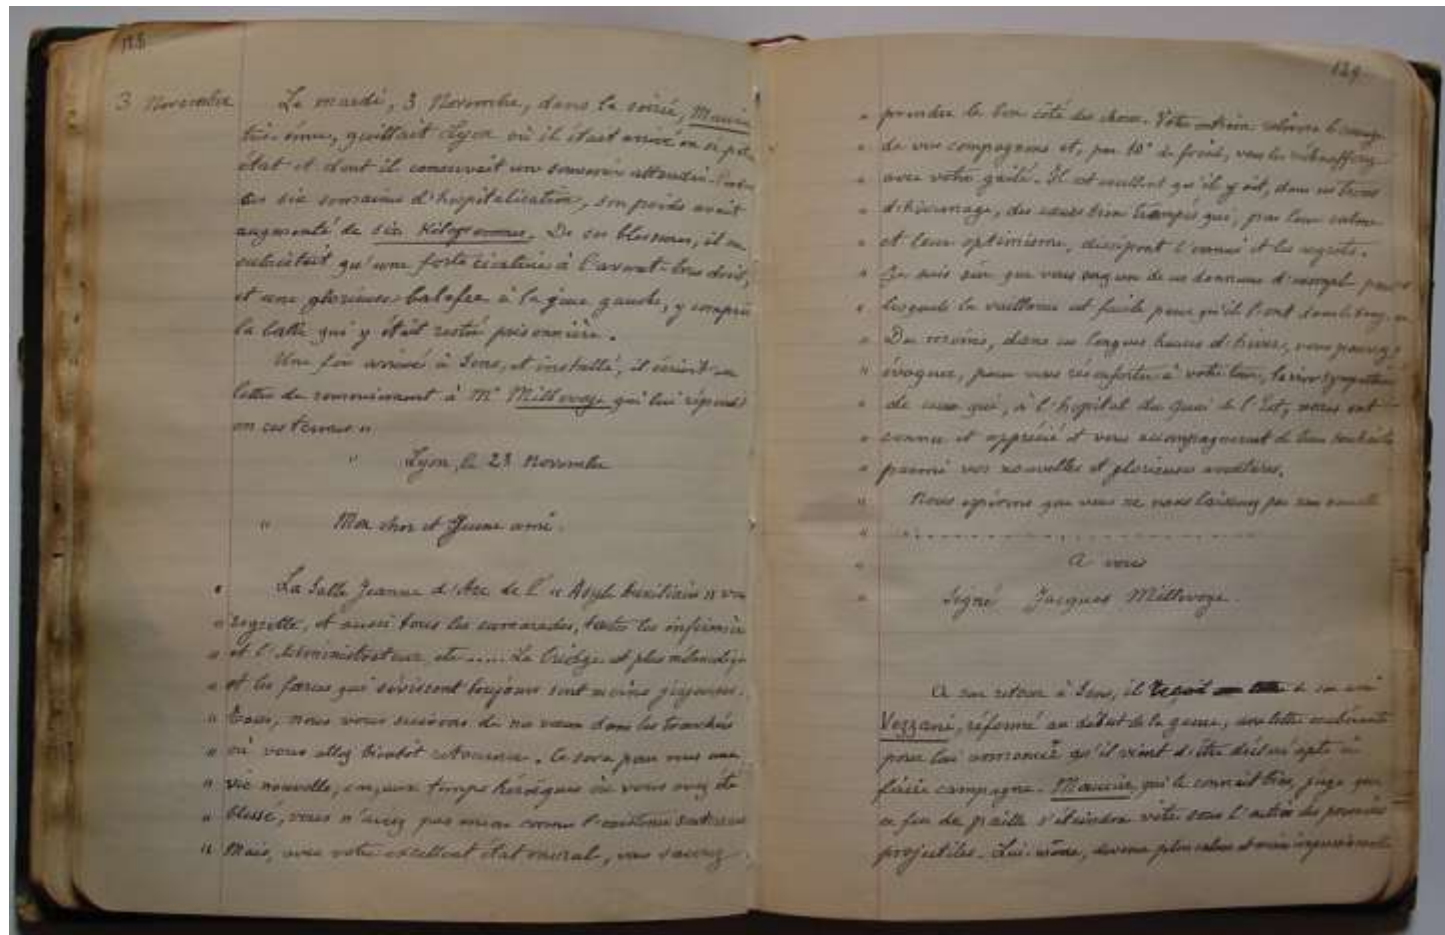 128
3 Novembre
Le mardi, 3 Novembre, dans la soirée, Maurice
très ému, quittait Lyon où il était arrivé en si piteux
état et dont il conservait un souvenir attendri.
ces six semaines d'hospitalisation, son poids avait
augmenté de six Kilogrammes. De ses blessures, il ne
subsistait qu'une forte cicatrice à l'avant-bras droit,
et une glorieuse balafre à la joue gauche, y compris
la balle qui y était restée prisonnière.
Une fois arrivé à Sens, et installé, il écrivit une
lettre de remerciement à Mr Millevoye qui lui répondit
en ces termes "
" Lyon, le 23 Novembre
" Mon cher et Jeune ami.
" La Salle Jeanne d'Arc de l' " Asyle Auxiliaire " vous
" regrette, et aussi tous les camarades, toutes les infirmières
" et l'Administrateur, etc ..... Le bridge est plus mélancolique
" et les farces qui sévissent toujours sont moins joyeuses.
" Tous, nous vous suivrons de nos vœux dans les tranchées
" où vous allez bientôt retourner. Ce sera pour vous une
" vie nouvelle, car, aux temps héroïques où vous avez été
" blessé, vous n'aviez pas encore connu l'existence souterraine
" Mais, avec votre excellent état moral, vous saurez
129.
" prendre le bon côté des choses. Votre entrain relèvera le courage
" de vos compagnons et, par 10° de froid, vous les réchaufferez
" avec votre gaîté. Il est excellent qu'il y ait, dans ces trous
" d'hivernage, des cœurs bien trempés qui, par leur calme
" et leur optimisme, dissipent l'ennui et les regrets.
" Je suis sûr que vous serez un de ces donneurs d'exemple pour
" lesquels la vaillance est facile parce qu'ils l'ont dans le sang.
" Du moins, dans ces longues heures d'hiver, vous pouvez
" évoquer, pour vous réconforter à votre tour, la vive sympathie
" de ceux qui, à l'hopital du Quai de l'Est, vous ont
" connu et apprécié et vous accompagneront de leurs souhaits
" parmi vos nouvelles et glorieuses aventures.
" Nous espérons que vous ne nous laisserez pas sans nouvelle
" ..............................
" A vous
" Signé Jacques Millevoye.
A son retour à Sens, il reçoit de son ami
Vezzani, réformé au début de la guerre, une lettre exubérante
pour lui annoncer qu'il vient d'être déclaré apte à
faire campagne. Maurice, qui le connait bien, juge que
ce feu de paille s'éteindra vite sous l'action des premiers
projectiles. Lui-même, devenu plus calme et moins impressionnable